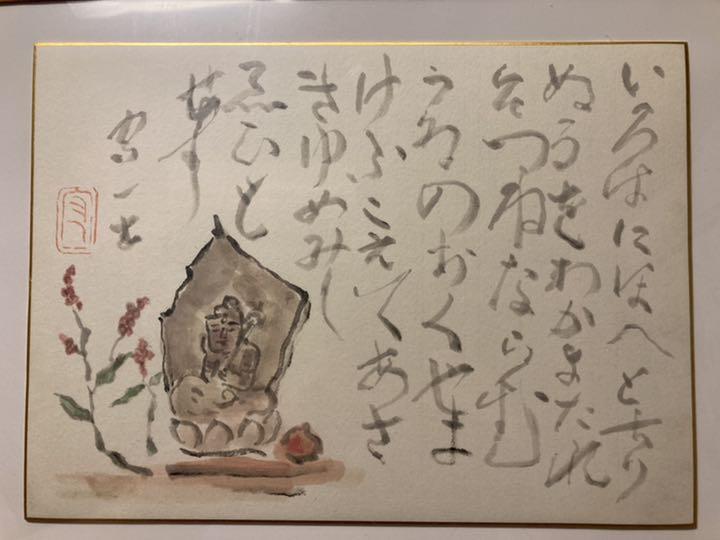 いろはにほへとちり
ぬるをわかよたれ
そつねならむ
うゐのおくやま
けふこえてあさ
きゆめみし
ゑひも
せす